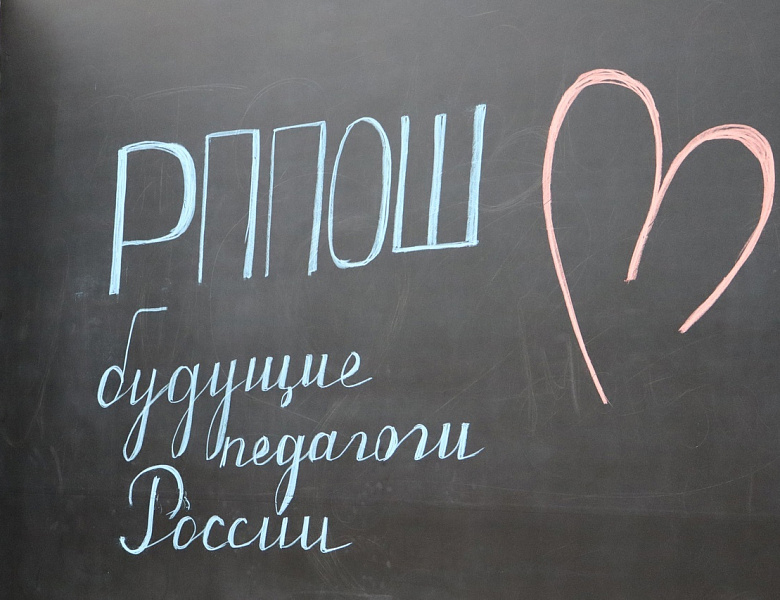 РППОШ
будущие
педагоги
России